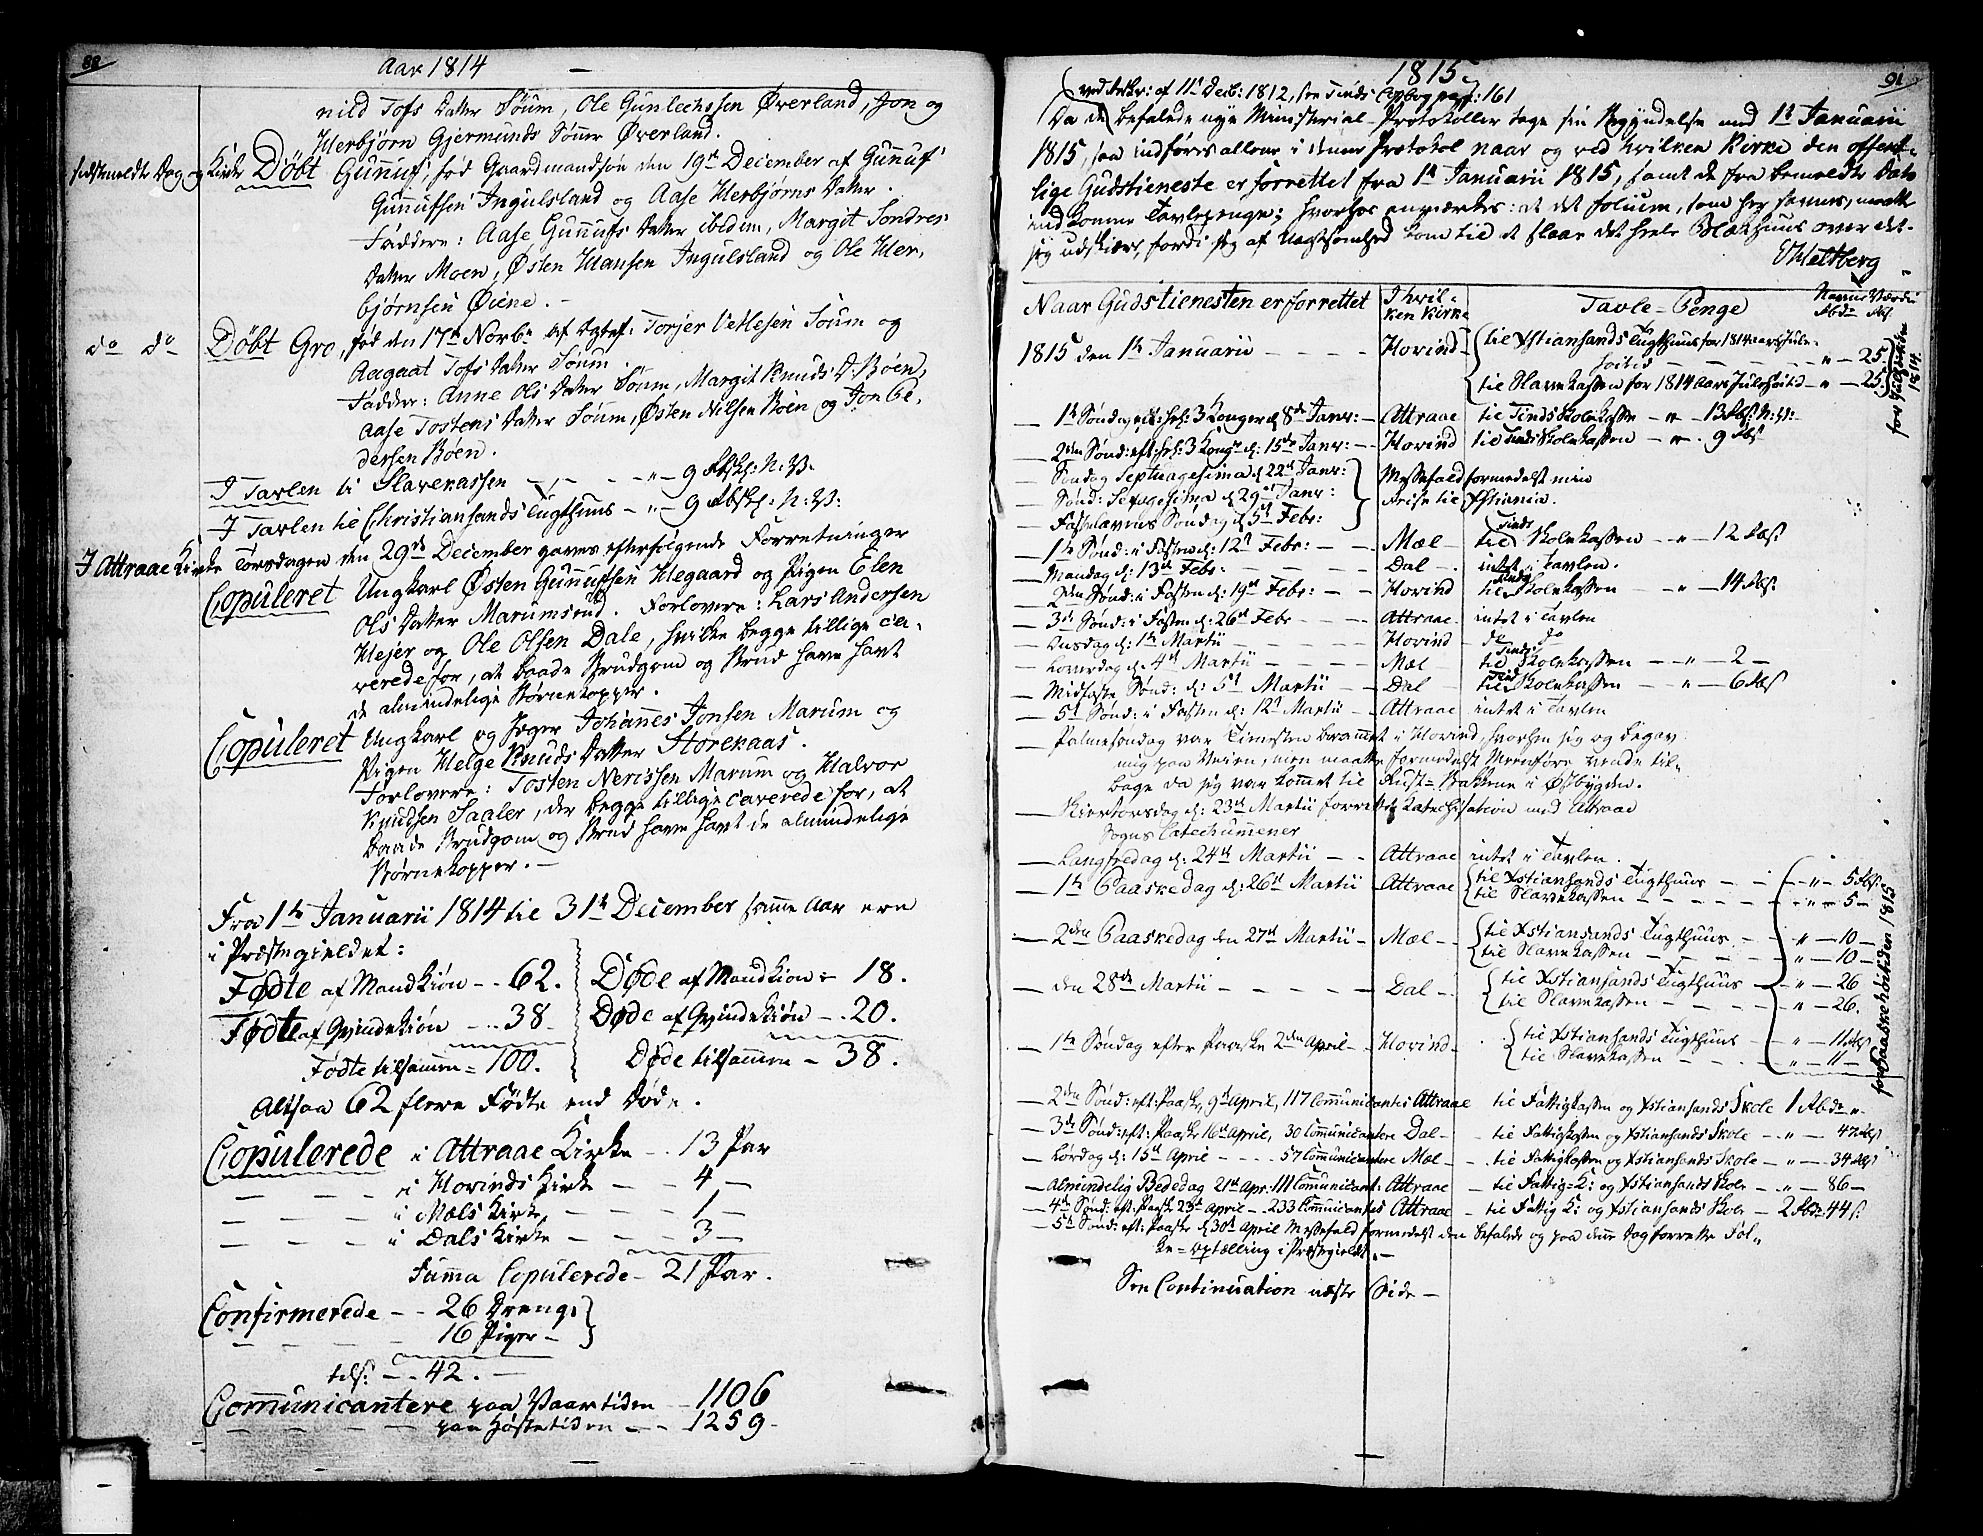 88
Aar 1814
nild Tofs Datter Söum, Ole Gunlechssen Øverland, Jon og
Herbjörn Gjermunds Sönner Øverland.
sidstmeldte Dag og Kirke Döbt Gunnuf, fød Gaardmandsøn den 19de December af Gunnuf
Gunnufsen Ingulsland og Aase Herbjörns Datter.
Faddere: Aase Gunnufs Datter ibidem, Margit Sondres
Datter Moen, Østen Hansen Ingulsland og Ole Her,
bjørnsen Øiene.
do do Döbt Gro, fød den 17de Novbr af Ægtef: Torjer Vetlesen Söum og
Aagaat Tofs Datter Söum.
Fadder: Anne Ols Datter Söum, Margit Knuds D. Böen,
Aase Tostens Datter Söum, Østen Nilsen Böen og Jon Pe,
dersen Böen.
I Tavlen til Slavekassen - „ - 9 Rbsk: N: V:
I Tavlen til Christiansands Tugthuus - „ - 9 Rbsk: N: V:
I Attraae Kirke Torsdagen den 29de December gaves efterfølgende Forretninger
Copuleret Ungkarl Østen Gunnufsen Hegaard og Pigen Elen
Ols Datter Marumsrud. Forlovere: Lars Andersen
Hejer og Ole Olsen Dale, hvilke begge tillige ca-
verede for, at baade Brudgom og Brud have havt
de almindelige Børnekopper.
Copuleret Ungkarl og Jeger Johannes Jonsen Marum og
Pigen Helge Knuds Datter Storekaas.
Forlovere: Tosten Nerissen Marum og Halvor
Knudsen Saaler, der begge tillige caverede for, at
baade Brudgom og Brud have havt de almindelige
Børnekopper.
Fra 1te Januarii 1814 til 31te December samme Aar ere
i Præstegieldet:
Födte af Mandkiön - - 62. Döde af Mandkiön - 18.
Födte af Qvindekiön - - 38 Döde af Qvindekiön - . 20.
Födte tilsammen = 100. Döde tilsammen - 38.
Altsaa 62 flere Födte end Döde.
Copulerede i Attraae Kirke - . 13 Par
- - - i Hovinds Kirke - - 4 -
- - - i Mæls Kirke - - - 1 -
- - - i Dals Kirke - - - 3 -
Summa Copulerede - 21 Par.
Confirmerede - - 26 Drenge
16 Piger -
tils: - . 42.
Communicantere paa Vaartiden - 1106
- - - paa Høstetiden - - 1259 -
1815
91
ved Rescr: af 11te Decb: 1812, see Tinds Copibog pag: 161
Da de befalede nye Ministerial-Protokoller tage sin Begyndelse med 1te Januarii
1815, saa indføres allene i denne Protokol naar og ved hvilken Kirke den offent-
lige Gudstieneste er forrettet fra 1te Januarii 1815, samt de fra bemeldte Dato
indkomne Tavlepenge; hvorhos anmærkes: at det folium, som her savnes, maatte
jeg udskiære, fordi jeg af Uagtsomhed kom til at slaae det hele Blækhuus over det.
Weltberg
Naar Gudstienesten er forrettet | I hvil-ken Kirke | Tavle-Penge | Navne Værdie Rbdr Rbs
1815 den 1te Januarii - - - - Hovind - til Xstiansands Tugthuus for 1814 aars Jule-
höitid - - - - „ - 25
til Slavekassen for 1814 Aars Julehöitid - „ - 25
for Julehöitiden 1814.
1te Søndag eft: hel: 3 Konger d 8de Janr: - Attraae til Tinds Skolekasse - „ - 13 Rbs: N: V:
2den Sønd: eft: hel: 3 Kong: d: 15de Janr: - Hovind til Tinds Skolekassen - „ - 9 Rbs
Søndag Septuagesima d 22de Janr:
Sønd: Sexagesima d 29de Janr:
Fastelavens Søndag d 5te Febr:
Messefald formedelst min
Reise til Xstiania.
1te Sönd: i Fasten d: 12te Febr: - - Mæl - til Tinds Skolekassen - „ - 12 Rbs
Mandag d: 13de Febr: - - - - Dal - intet i Tavlen.
2den Sønd: i Fasten d: 19de Febr: - - Hovind til Tinds Skolekassen - „ - 14 Rbs
3de Sønd: i Fasten d: 26de Febr - - - Attraae - intet i Tavlen
Onsdag d: 1te Martii - - - - Hovind - do do
Løverdag d 4de Martii - - - Mæl - til Tinds Skolekassen - „ - 2 -
Midfaste Sønd: d: 5te Martii - - Dal - til Tinds Skolekassen - „ - 6 Rbs
5te Sønd: i Fasten d: 12te Martii - Attraae - intet i Tavlen
Palmesøndag var Tienesten berammet i Hovind, hvorhen jeg og begav
mig paa Veien, men maatte formedelst Meenføre vende til-
bage da jeg var kommet til Rust-Bakkene i Østbygden.
Skiertorsdag d: 23de Martii forrettet Katechisation med Attraae
Sogns Catechumener
Langfredag d: 24de Martii - - Attraae intet i Tavlen.
1te Paaskedag d: 26de Martii - Attraae til Xstiansands Tugthuus - - „ - 5 Rbs
til Slavekassen - - - - „ - 5 -
2den Paaskedag den 27de Martii - Mæl - til Xstiansands Tugthuus - „ - 10 -
til Slavekassen - - - - „ - 10 -
den 28de Martii - - - - - Dal - til Xstiansands Tugthuus - „ - 26
til Slavekassen - - - „ - 26.
1te Søndag efter Paaske 2den April - Hovind - til Xstiansands Tugthuus - „ - 11 Rbs
til Slavekassen - - - „ - 11 -
for Paaskehöitiden 1815
2den Sønd: eft: Paaske, 9de April, 117 Communicantes Attraae til Fattigkassen og Xstiansands Skole 1 Rbdr „ -
3de Sønd: eft: Paaske 16de April, 30 Communicantere Dal - - til Fattigkassen og Xstiansands Skole - „ - 47 Rbs
Lørdag d: 15de April - - - - 57 Communicantere Mæl - - til Fattigkassen og Xstiansands Skole - „ - 34 Rbs
Almindelig Bededag 21de Apr: 111 Communicant: Attraae - til Fattig-C: og Xstiansands Skole - „ - 86 -
4de Sønd: eft: Paaske 23de April - - 233 Communicantes Attraae - til Fattig C: og Xstiansands Skole - 2 Rbdr 44 s:
5te Sønd: eft: Paaske d 30te April Messefald formedelst den befalede og paa denne Dag forrettede Fol-
ke-optælling i Præstegieldet. -
See Continuation næste Side -